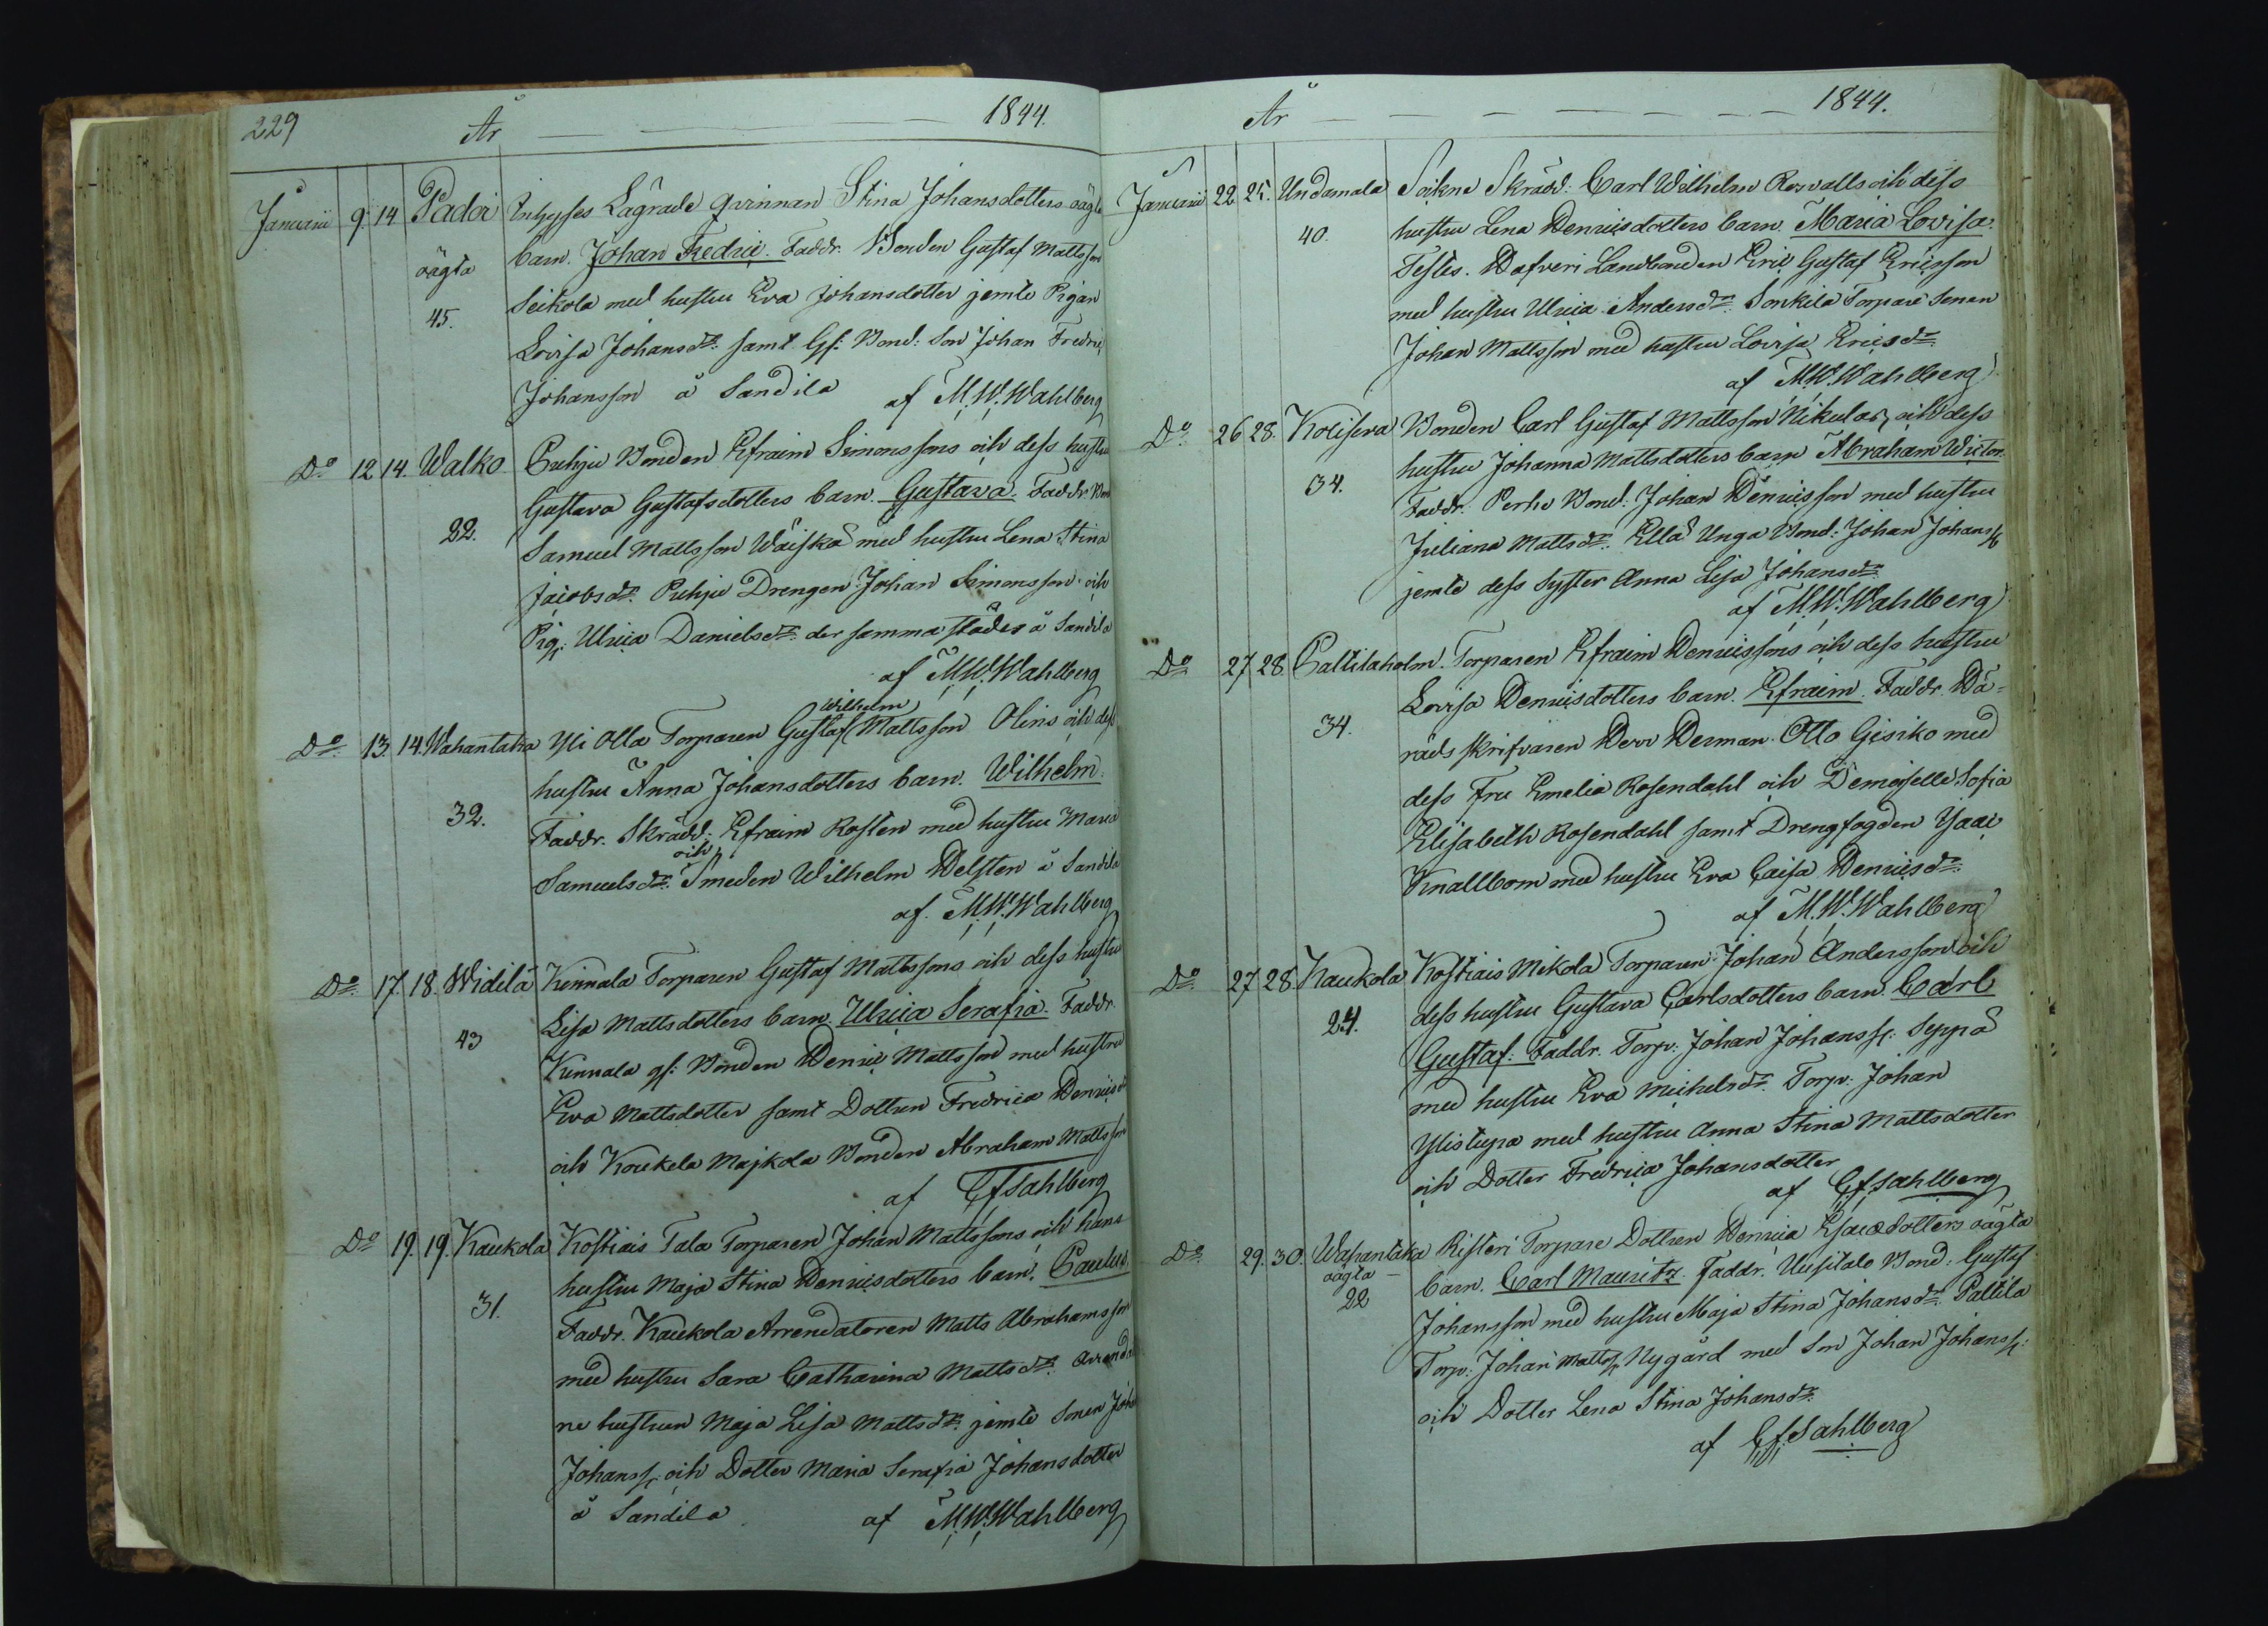 229
År 1844.
Januarii 9 14 Padoi Inhyses Lägrade qvinnan Stina Johansdotters oägta
oägta barn. Johan Fredric. Faddr. Bonden Gustaf Mattsson
45. Seikola med hustru Eva Johansdotter jemte Pigan
Lovisa Johansdr. samt Gf: Bond: Son Johan Fredric
Johansson å Sandila af M.W.Wahlberg
Do 12 14. Walko Puhju Bonden Efraim Simonssons och dess hustru
Gustava Gustafsdotters barn. Gustava. Faddr.
22. Samuel Mattsson Waiska med hustru Lena Stina
Jacobsdr. Puhju Drengen Johan Simonsson och
Pig: Ulrica Danielsdr. der sammastädes å Sandila
af M.W.Wahlberg
Wilhelm
Do 13. 14. Wahantaka Yli Olla Torparen Gustaf Mattsson Olins och dess
hustru Anna Johansdotters barn. Wilhelm.
32. Faddr. Skrädd: Efraim Rosten med hustru Maria
och
Samuelsdr. Smeden Wilhelm Helsten å Sandila
af. M.W.Wahlberg
Do 17. 18. Widilä Kinnala Torparen Gustaf Mattssons och dess hustru
Lisa Mattsdotters barn. Ulrica Serafia. Faddr.
43 Kinnala gf: Bonden Henric Mattsson med hustru
Eva Mattsdotter samt Dottren Fredrica Henricsdr
och Koukela Majkola Bonden Abraham Mattsson
af CfSahlberg
Do 19. 19. Kaukola Kostiais Tala Torparen Johan Mattssons och hans
hustru Maja Stina Henricsdotters barn. Paulus.
31. Faddr. Kaukola Arrendatoren Matts Abrahamsson
med hustru Sara Catharina Mattsdr.
re hustrun Maja Lisa Mattsdr. jemte Sonen
Johanss: och Dotter Maria Serafia Johansdotter
å Sandila af M.W.Wahlberg
År 1844.
Januarii 22 25. Undamala Sockne Skrädd: Carl Wilhelm Rosvalls och dess
40. hustru Lena Henricsdotters barn. Maria Lovisa.
Testes. Hafveri Landbonden Eric Gustaf Ericsson
med hustru Ulrica Andersdr. Sonkila Torpare Sonen
Johan Mattsson med hustru Lovisa Ericsdr
af M.W.Wahlberg
Do 26 28. Koliseva Bonden Carl Gustaf Mattsson Nikulas, och dess
34. hustru Johanna Mattsdotters barn Abraham Wictor.
Faddr. Perho Bond: Johan Henricsson med hustru
Juliana Mattsdr. Ella Unga Bond: Johan Johanss:
jemte dess Syster Anna Lisa Johansdr.
af M.W.Wahlberg
Do 27 28. Paltilaholm. Torparen Efraim Henricssons och dess hustru
Lovisa Henricsdotters barn. Efraim. Faddr. Hä-
34. rads skrifvaren Herr Herman Otto Gisiko med
dess Fru Emelia Rosendahl och Demoiselle Sofia
Elisabeth Rosendahl samt Drengfogden Isaac
Knallbom med hustru Eva Caisa Henricsdr.
af M.W.Wahlberg
Do 27 28 Kaukola Kostiais Mikola Torparen Johan Andersson och
24. dess hustru Gustava Carlsdotters barn. Carl
Gustaf: Faddr. Torp: Johan Johanss: Seppä
med hustru Eva Michelsdr. Torp: Johan
Ylistupa med hustru Anna Stina Mattsdotter
och Dotter Fredrica Johansdotter
af CfSahlberg
Do 29. 30. Wahantaka Risteri Torpare Dottren Henrica Esaiædotters oägta
oägta barn. Carl Mauritz. Faddr. Uusitalo Bond: Gustaf
22 Johansson med hustru Maja Stina Johansdr. Paltila
Torp: Johan Matts: Nygård med Son Johan Johanss:
och Dotter Lena Stina Johansdr.
af CfSahlberg